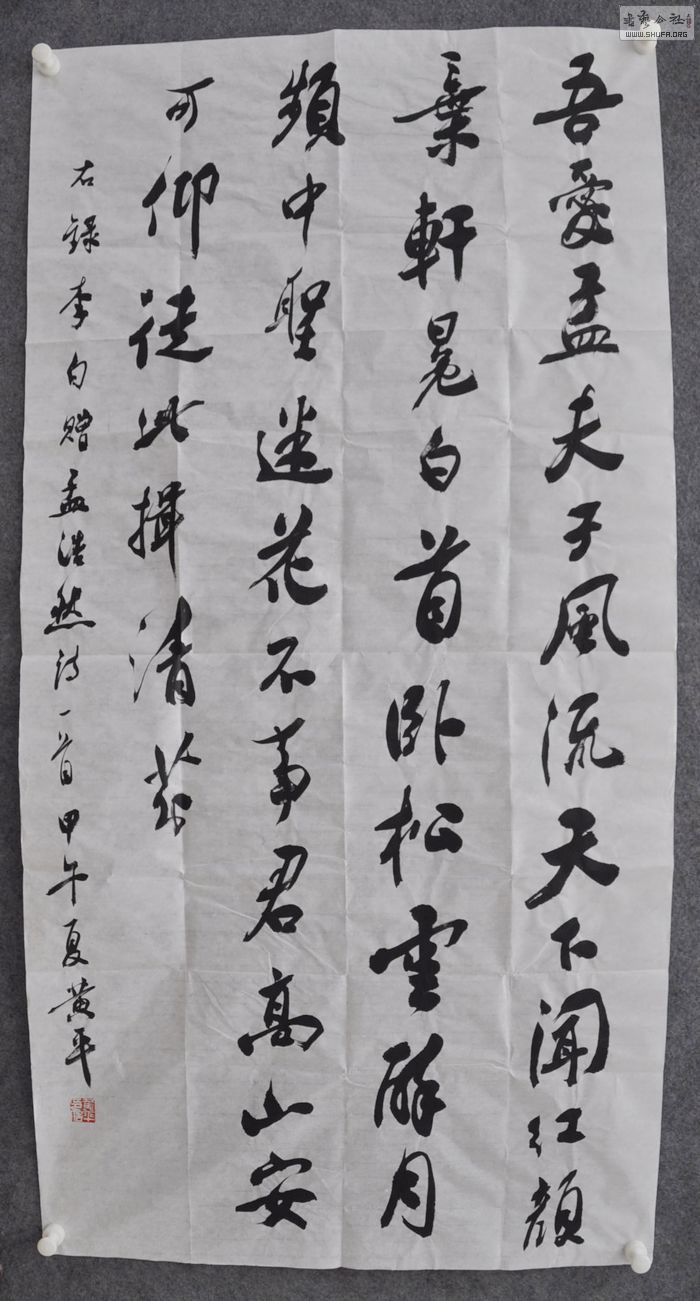 吾愛孟夫子風流天下聞紅顏
棄軒冕白首臥松雲醉月
頻中聖迷花不事君高山安
可仰徒此揖清芬
右錄李白贈孟浩然詩一首甲午夏黄平
WWW.SHUFA.ORG